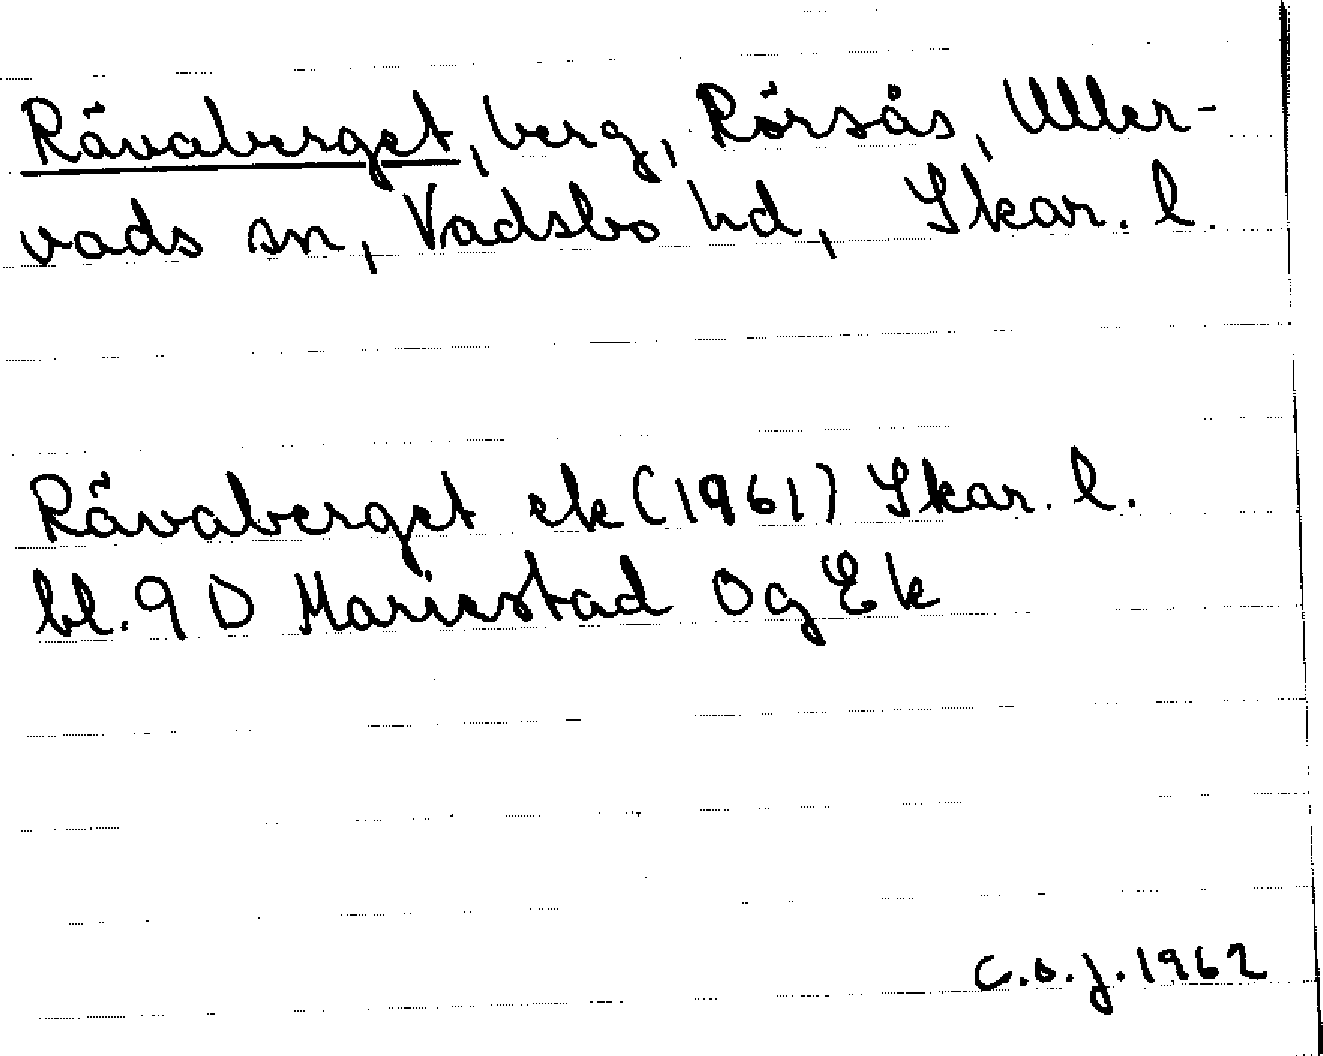 Rävaberget, berg, Rörsås, Uller-
vads sn, Vadsbo hd, Skar. l.
Rävaberget ek (1961) Skar. l.
bl. 9 D Mariestad Og Ek
C.o.j. 1962